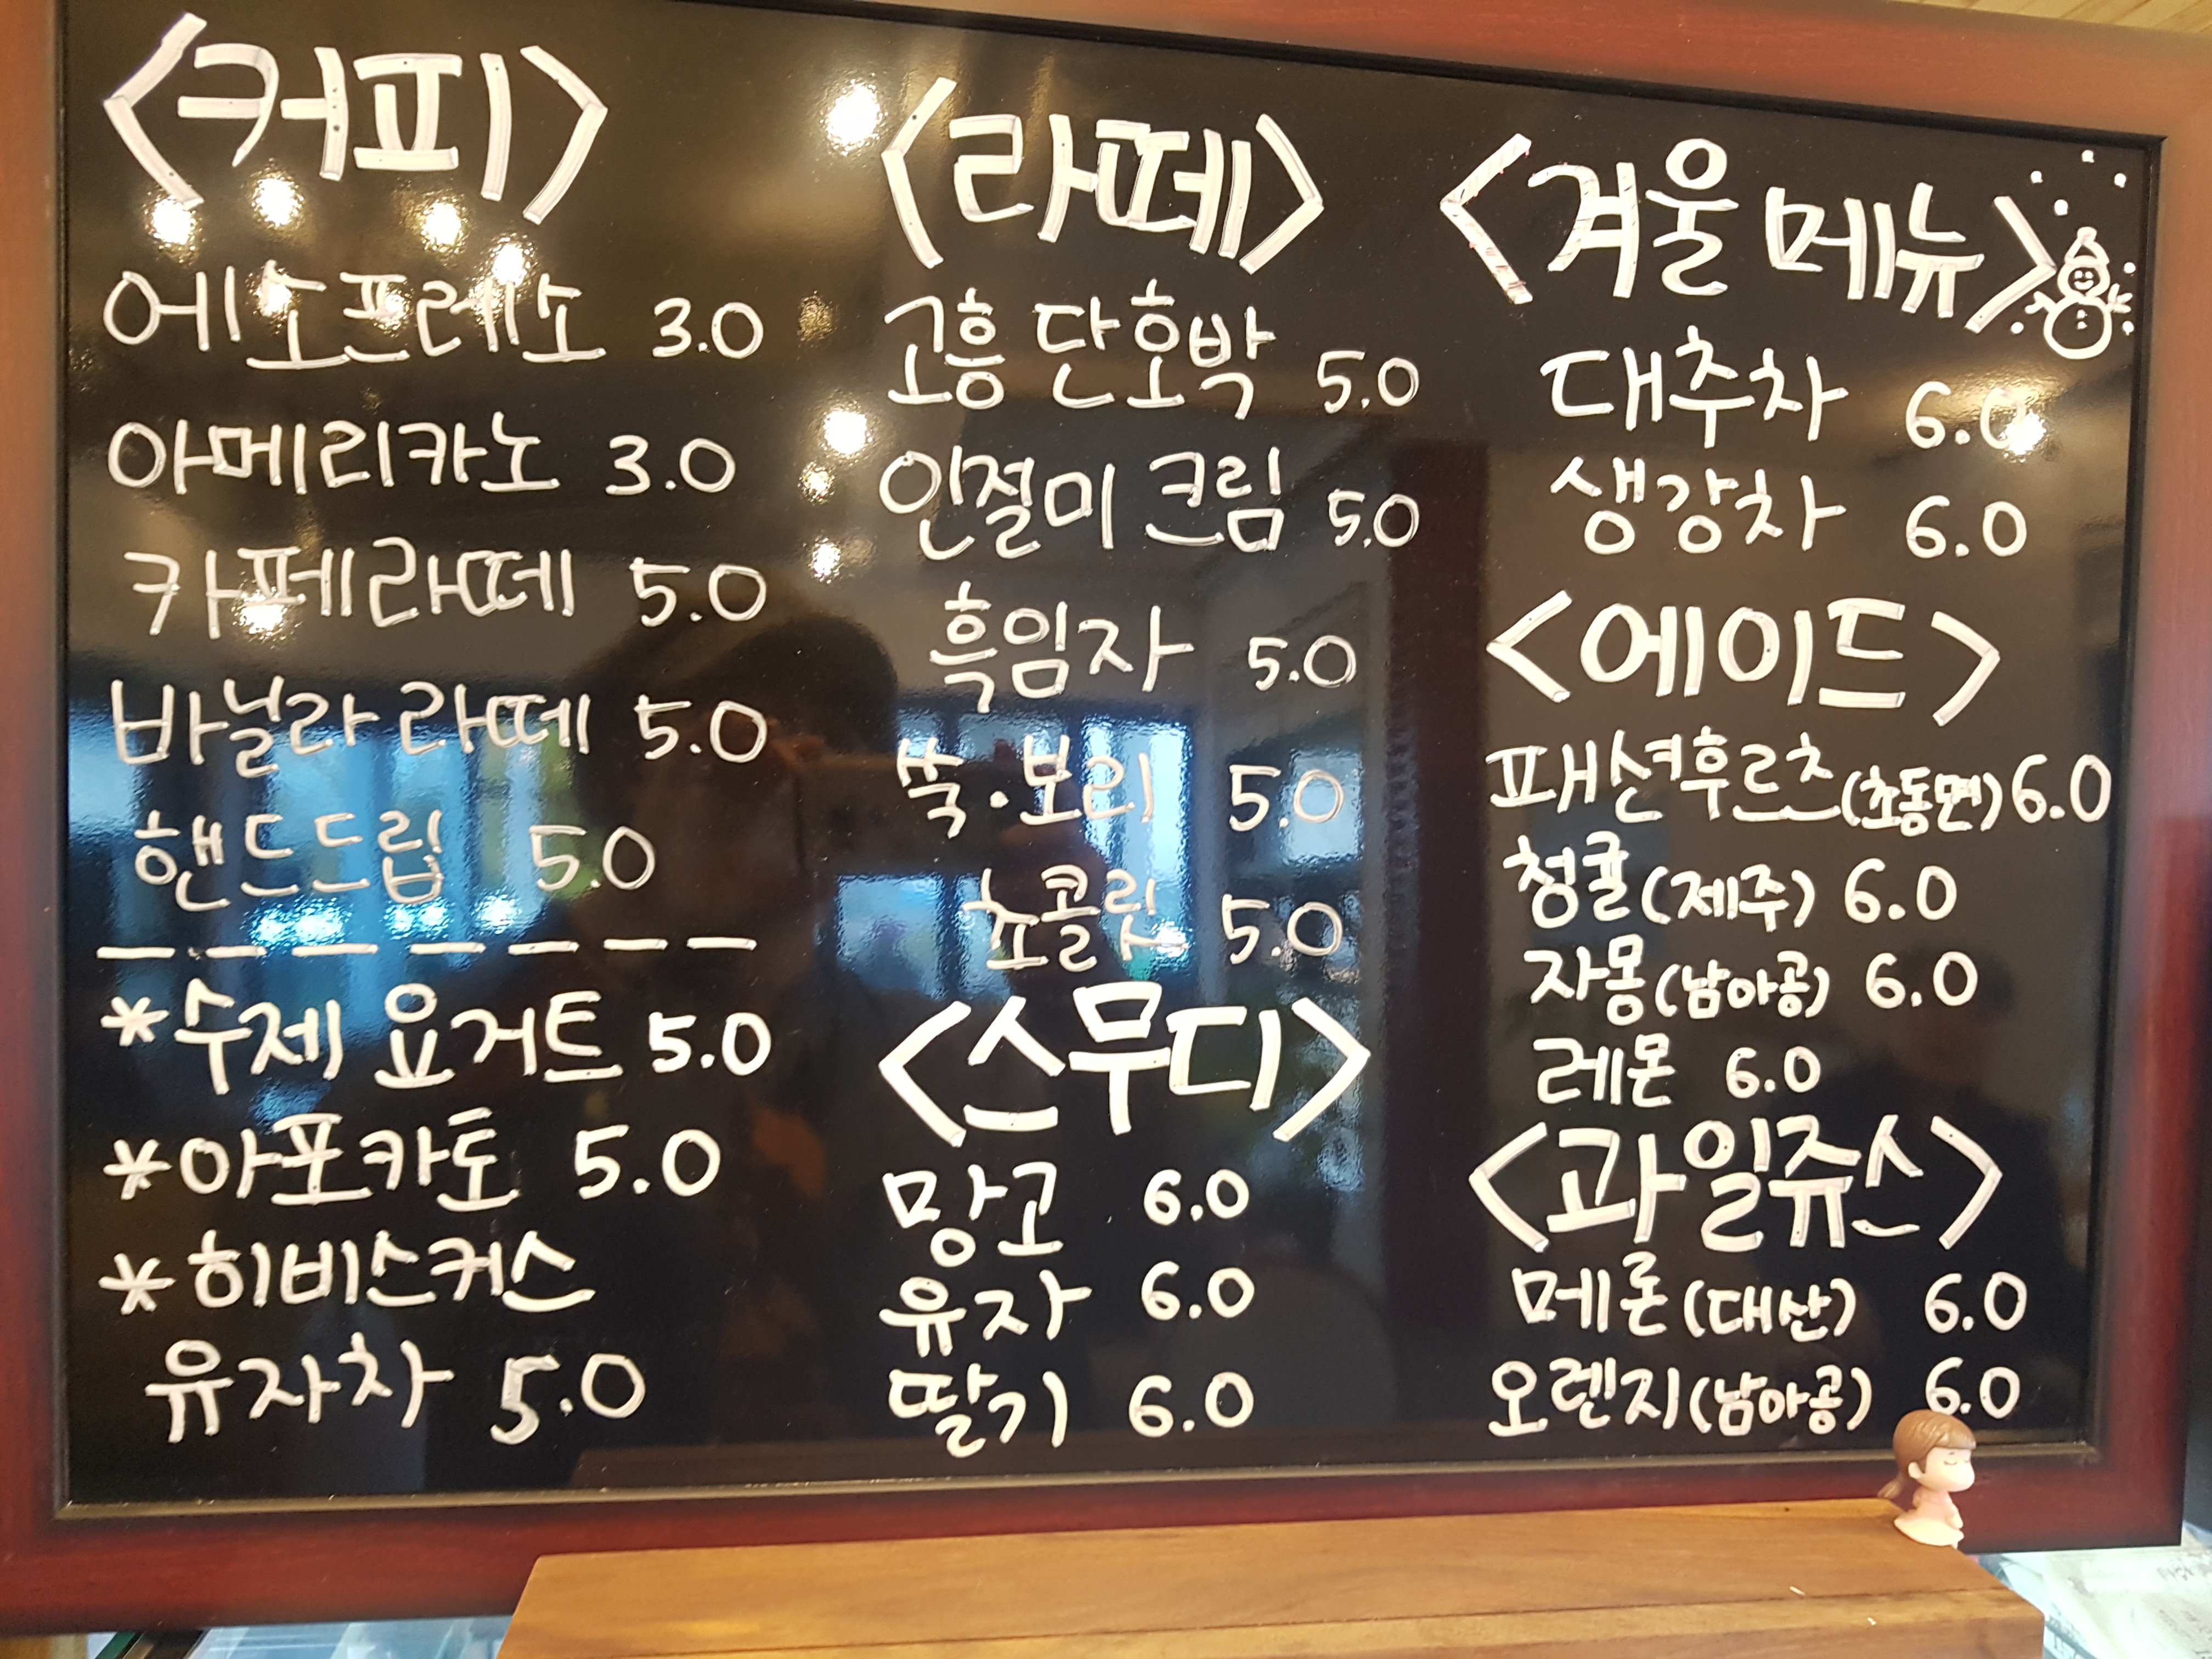 <커피>
에소프레소 3.0
아메리카노 3.0
카페라떼 5.0
바닐라 라떼 5.0
핸드드립 5.0
*수제 요거트 5.0
*아포카토 5.0
*히비스커스
유자차 5.0
<라떼>
고흥 단호박 5.0
인절미 크림 5.0
흑임자 5.0
쑥·보리 5.0
쵸콜릿 5.0
<스무디>
망고 6.0
유자 6.0
딸기 6.0
<겨울 메뉴>
대추차 6.0
생강차 6.0
<에이드>
패션후르츠(초동면) 6.0
청귤(제주) 6.0
자몽(남아공) 6.0
레몬 6.0
<과일쥬스>
메론(대산) 6.0
오렌지(남아공) 6.0